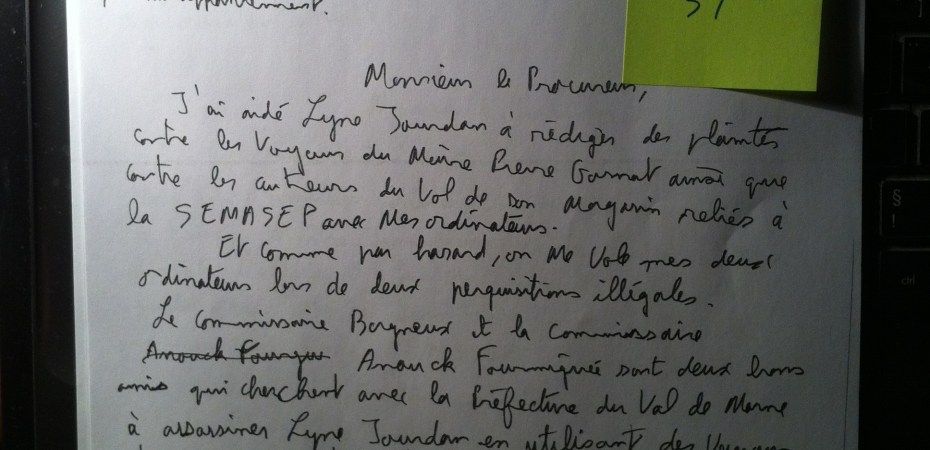 appartement.
37
Monsieur le Procureur,
J'ai aidé Lyne Jourdan à rédiger des plaintes
contre les Voyous du Maire Pierre Garnat ainsi que
contre les auteurs du Vol de son Magasin reliés à
la SEMASEP avec Mes ordinateurs.
Et comme par hasard, on Me Vole mes deux
ordinateurs lors de deux perquisitions illégales.
Le Commissaire Bagneux et la commissaire
Anouck Fourmigué sont deux bons
amis qui cherchent avec la Préfecture du Val de Marne
à assassiner Lyne Jourdan en utilisant des
§
!
ctrl